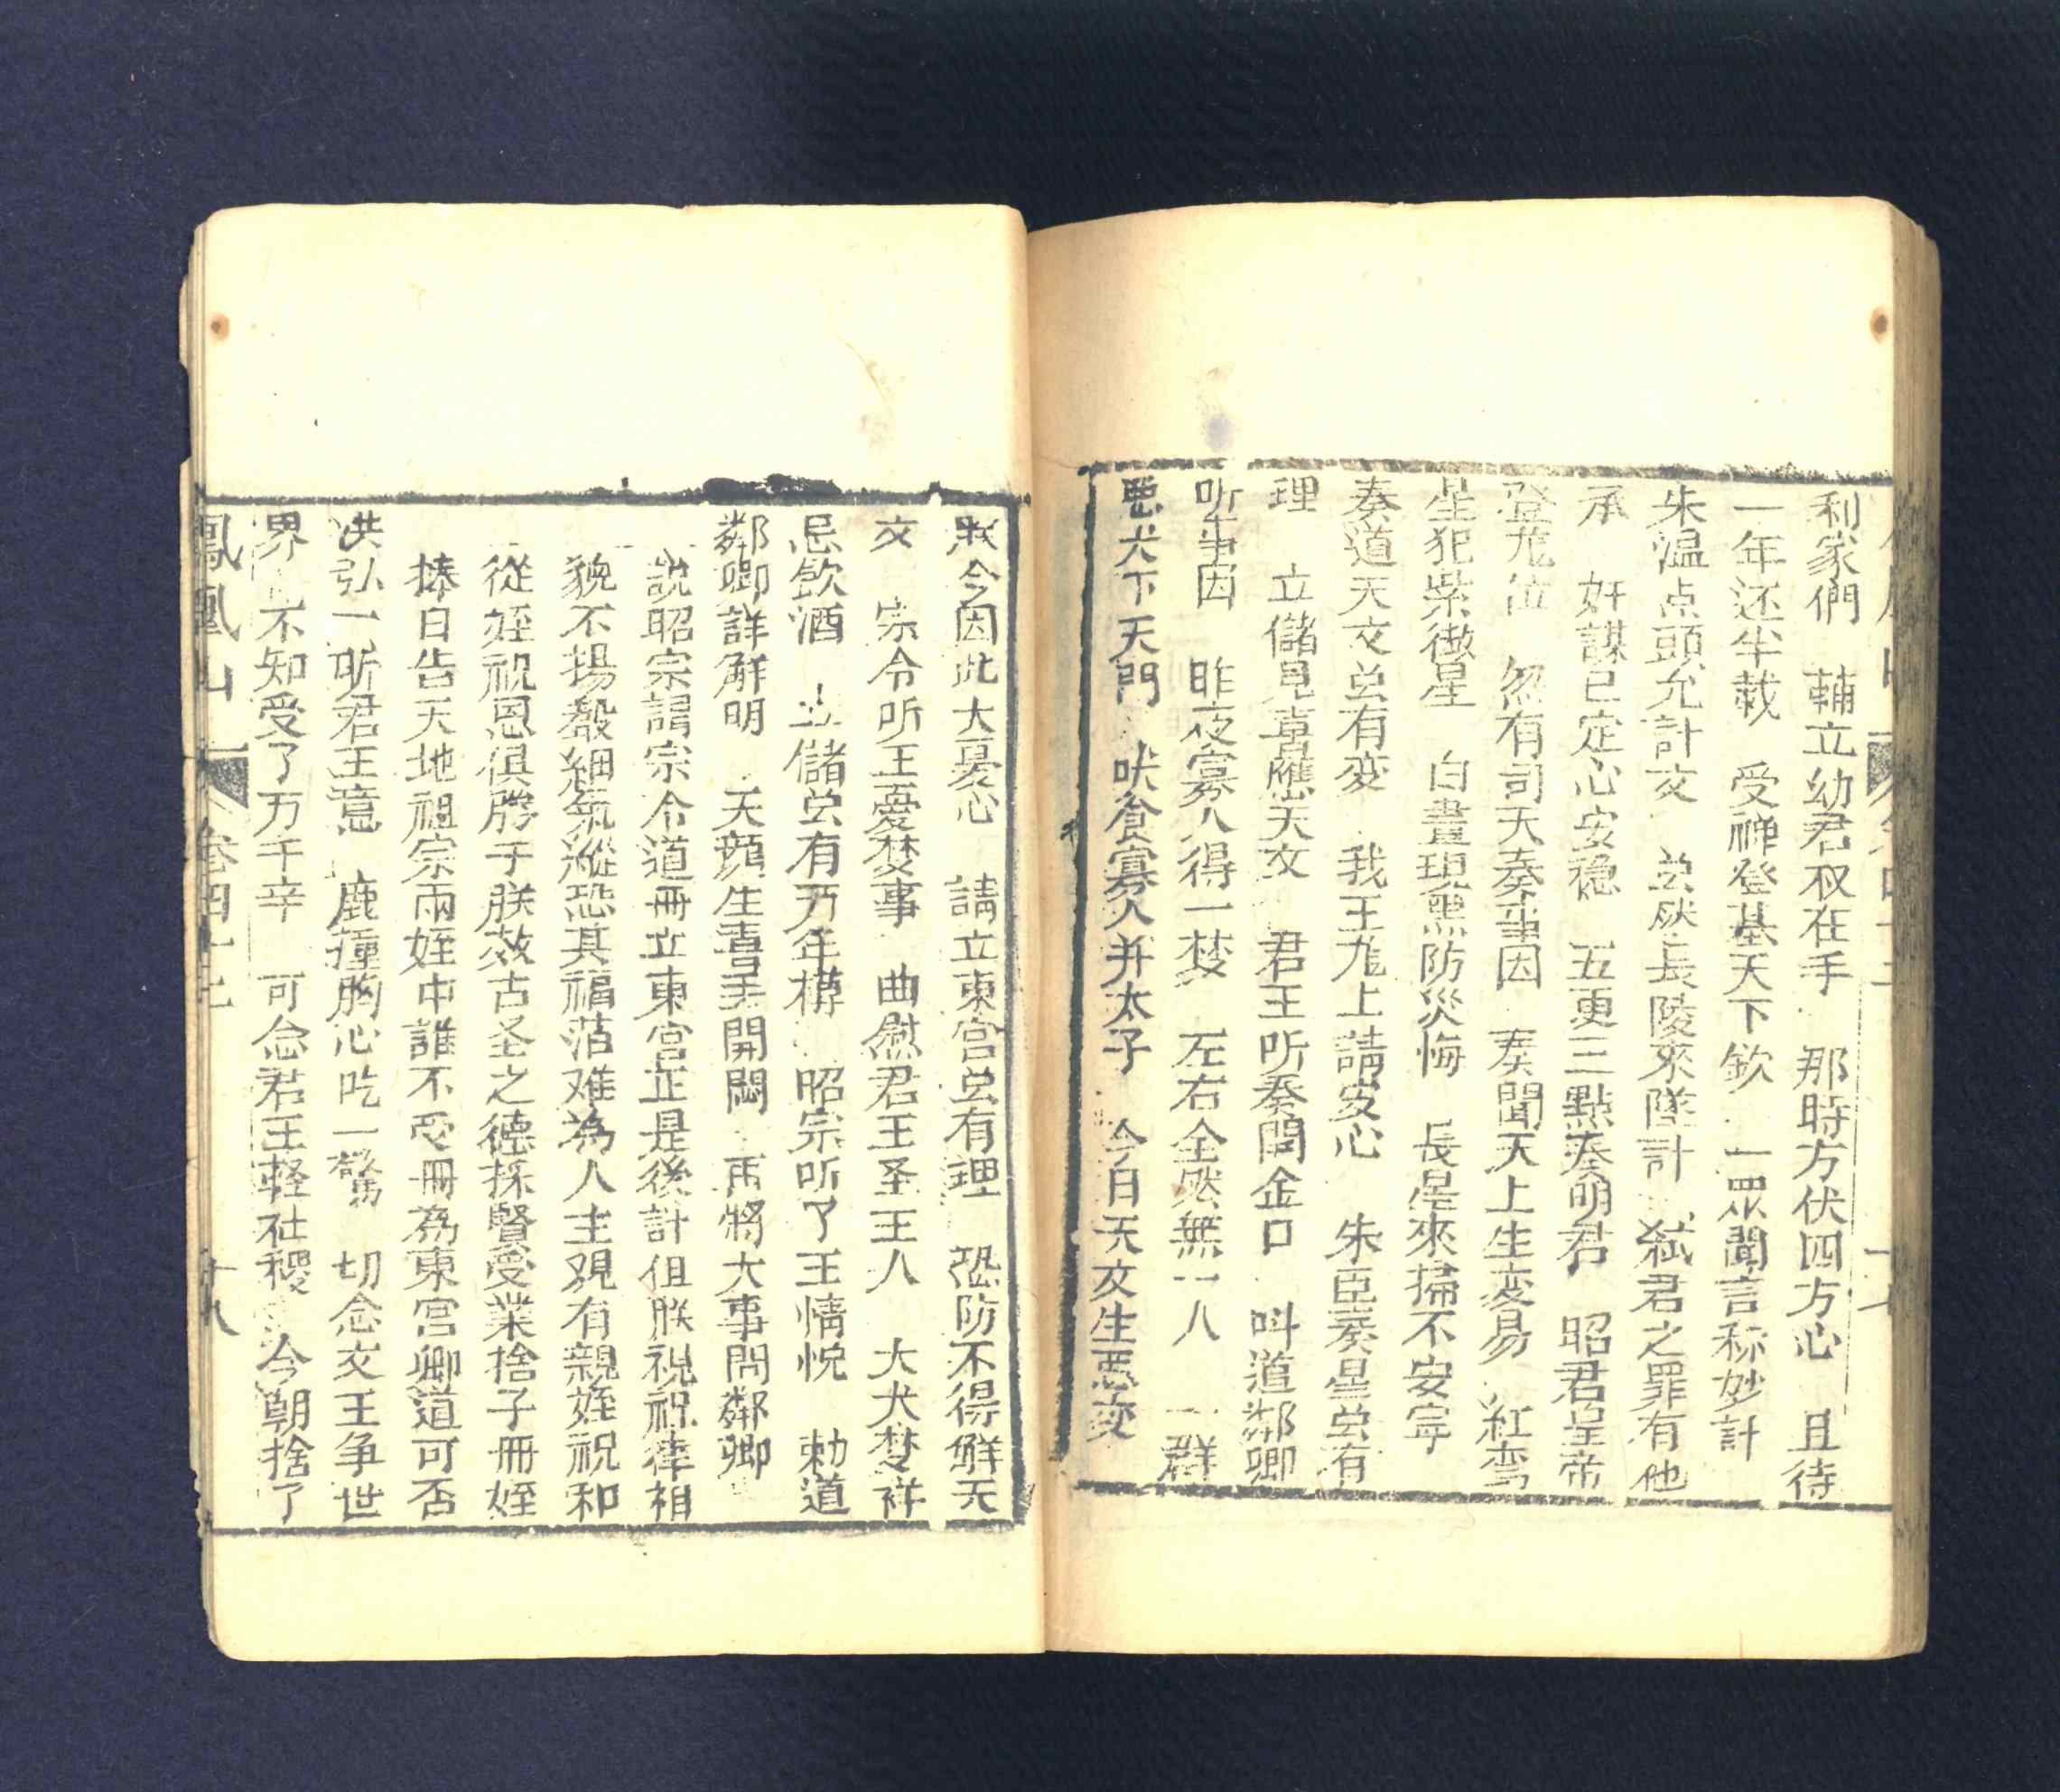 利家們　輔立幼君叔在手　那時方伏四方心　且待
一年还半載　受禅登基天下欽　一眾聞言称妙計
朱温点頭允計交　長陵來墜計　弑君之罪有他
承　奸謀已定心安稳　五更三點奏明君　昭君呈帝
登龙位　忽有司天奏事因　奏聞天上生变易　紅鸾
星犯紫微星　白晝現黑防災悔　長星來掃不安寜
奏道天文岂有变　我王龙上請安心　朱臣奏星岂有
理　立儲見喜應天文　君王听奏開金口　叫道鄰卿
听事因　昨夜寡人得一梦　左右全然無一人　一群
悪犬下天門　吠食寡人并太子　今日天文生悪变
今因此大憂心　請立東宫岂有理　恐防不得解天
文　宗令听王憂梦事　曲慰君王圣王人　大犬梦祥
忌飲酒　立儲岂有万年樽　昭宗听了王情悦　勅道
鄰卿詳解明　天顔生喜丢開悶　再將大事問鄰卿
説昭宗謂宗令道冊立東宫正是後計但朕祝祝徍相
貌不揚聲細氣縱恐其福萡难為人主观有親姪祝和
從姪祝恩俱胯于朕效古圣之德採賢受業捨子冊姪
捧日告天地祖宗兩姪中誰不受冊為東宫卿道可否
洪弘一听君王意　鹿撞胸心吃一驚　切念文王争世
界　不知受了万千辛　可念君王軽社稷　今朝捨了
鳳凰山　卷四十三　十八